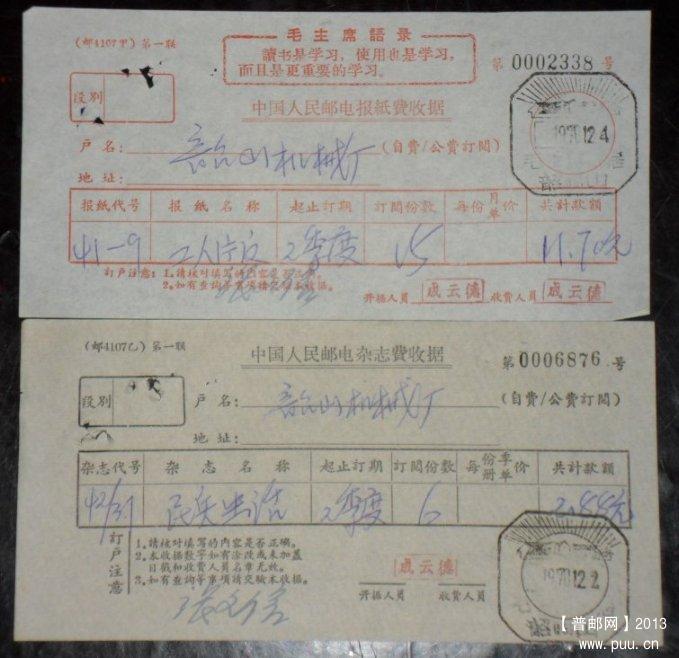 (邮4107甲) 第一联
毛主席語录
讀书是学习，使用也是学习，
而且是更重要的学习。
第 0002338 号
段別
中国人民邮电报紙費收据
户名： 机械厂 (自費/公費訂閱)
地址：
1970.12.4
报紙代号 报紙名称 起止訂期 訂閱份数 每份月单价 共計款額
41-9 2季度 15 11.70元
訂户注意： 1.請核对填写的内容是否正确。
2.如有查詢等事項請交驗本收据。
开据人員 成云德 收費人員 成云德
(邮4107乙) 第一联
中国人民邮电杂志費收据
第 0006876 号
段別
户名： 机械厂 (自費/公費訂閱)
地址：
杂志代号 杂志名称 起止訂期 訂閱份数 每份季册单价 共計款額
2季度 6 2.88元
訂户注意
1.請核对填写的内容是否正确。
2.本收据数字如有涂改或未加盖
日戳和收費人員名章无效。
3.如有查詢等事項請交驗本收据。
成云德
开据人員 收費人員
1970.12.2
【普邮网】2013
www.puu.cn